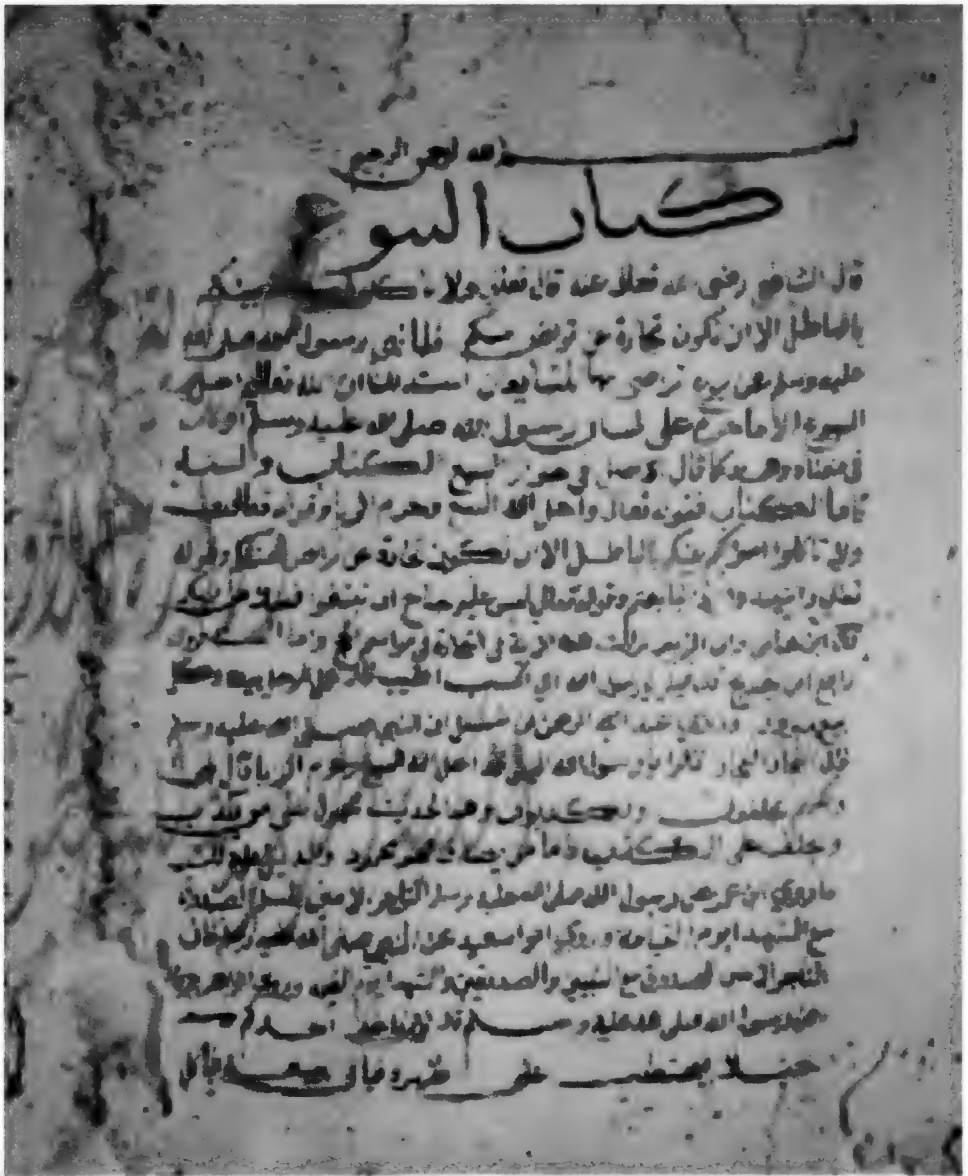 بسم الله الرحمن الرحيم
كتاب البيوع
قال الشافعي رضي الله تعالى عنه قال تعالى ولا تأكلوا بينكم
بالباطل الا ان تكون تجارة عن تراض منكم فلما نهى رسول الله صلى الله
عليه وسلم عن بيوع تراضى بها المتبايعان استدللنا ان الله تعالى احل
البيوع الا ما حرم على لسان رسوله صلى الله عليه وسلم او كان
في معناه وهو كما قال وصل في جواز البيع الكتاب والسنة
فاما الكتاب فقوله تعالى واحل الله البيع وحرم الربا وقوله تعالى
ولا تاكلوا اموالكم بينكم بالباطل الا ان تكون تجارة عن تراض منكم وقوله
تعالى واشهدوا اذا تبايعتم وقوله تعالى ليس عليكم جناح ان تبتغوا فضلا من ربكم
قال ابن عباس وابن الزبير نزلت هذه الاية في التجارة في مواسم
رافع ابن خديج قال قيل يرسول الله اي الكسب اطيب قال عمل الرجل بيده وكل
بيع مبرور وروى عبد الرحمن بن شبل ان النبي صلى الله عليه وسلم
قال التجار الفجار قالوا يرسول الله اليس قد احل الله البيع وحرم الربا قال
يحلفون ويكذبون وهذا الحديث محمول على من يكذب
ويحلف على الكذب فاما من
ما روى ابن عمر عن رسول الله صلى الله عليه وسلم التاجر الامين المسلم الصدوق
مع الشهدا يوم القيامة وروى ابو سعيد عن النبي صلى الله عليه وسلم قال
التاجر الامين الصدوق مع النبيين والصديقين والشهدا يوم القيمة وروى
عن رسول الله صلى الله عليه وسلم قال لان ياخذ احدكم
حبلا يحتطب على ظهره فياتي